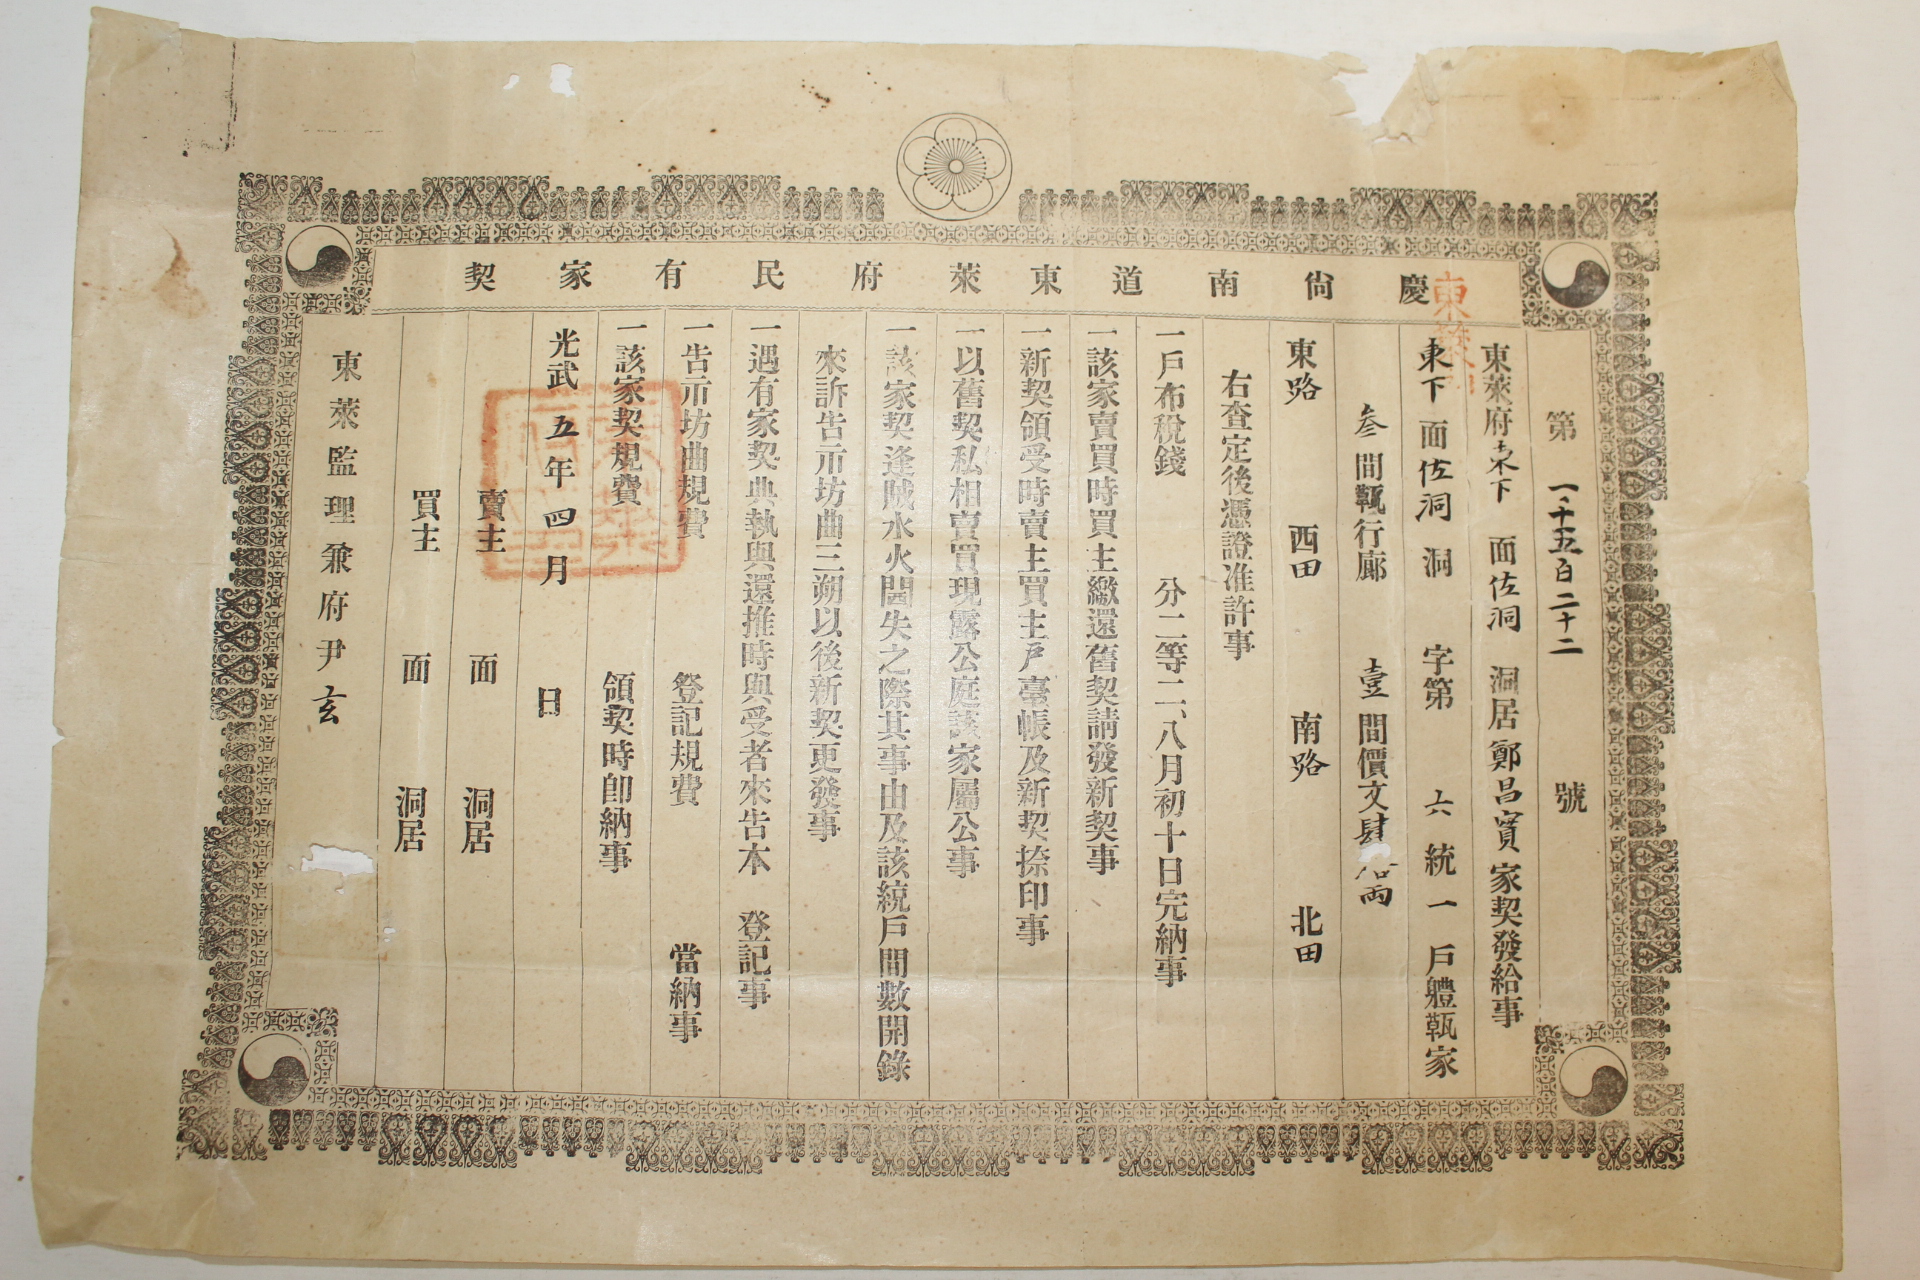 慶尙南道東萊府民有家契
第一千五百二十二號
東萊府東下面佐洞洞居鄭昌賓家契發給事
東下面佐洞洞字第六統一戶軆瓾家
叄間瓾行廊壹間價文肆 兩
東路西田南路北田
右查定後憑證准許事
一戶布稅錢分二等二、八月初十日完納事
一該家賣買時買主繳還舊契請發新契事
一新契領受時賣主買主戶臺帳及新契捺印事
一以舊契私相賣買現露公庭該家屬公事
一該家契逢賊水火閪失之際其事由及該統戶間數開錄
來訴告示坊曲三朔以後新契更發事
一遇有家契典執與還推時與受者來告本 登記事
一告示坊曲規費 登記規費 當納事
一該家契規費 領契時卽納事
光武五年四月日
賣主面洞居
買主面洞居
東萊監理兼府尹玄